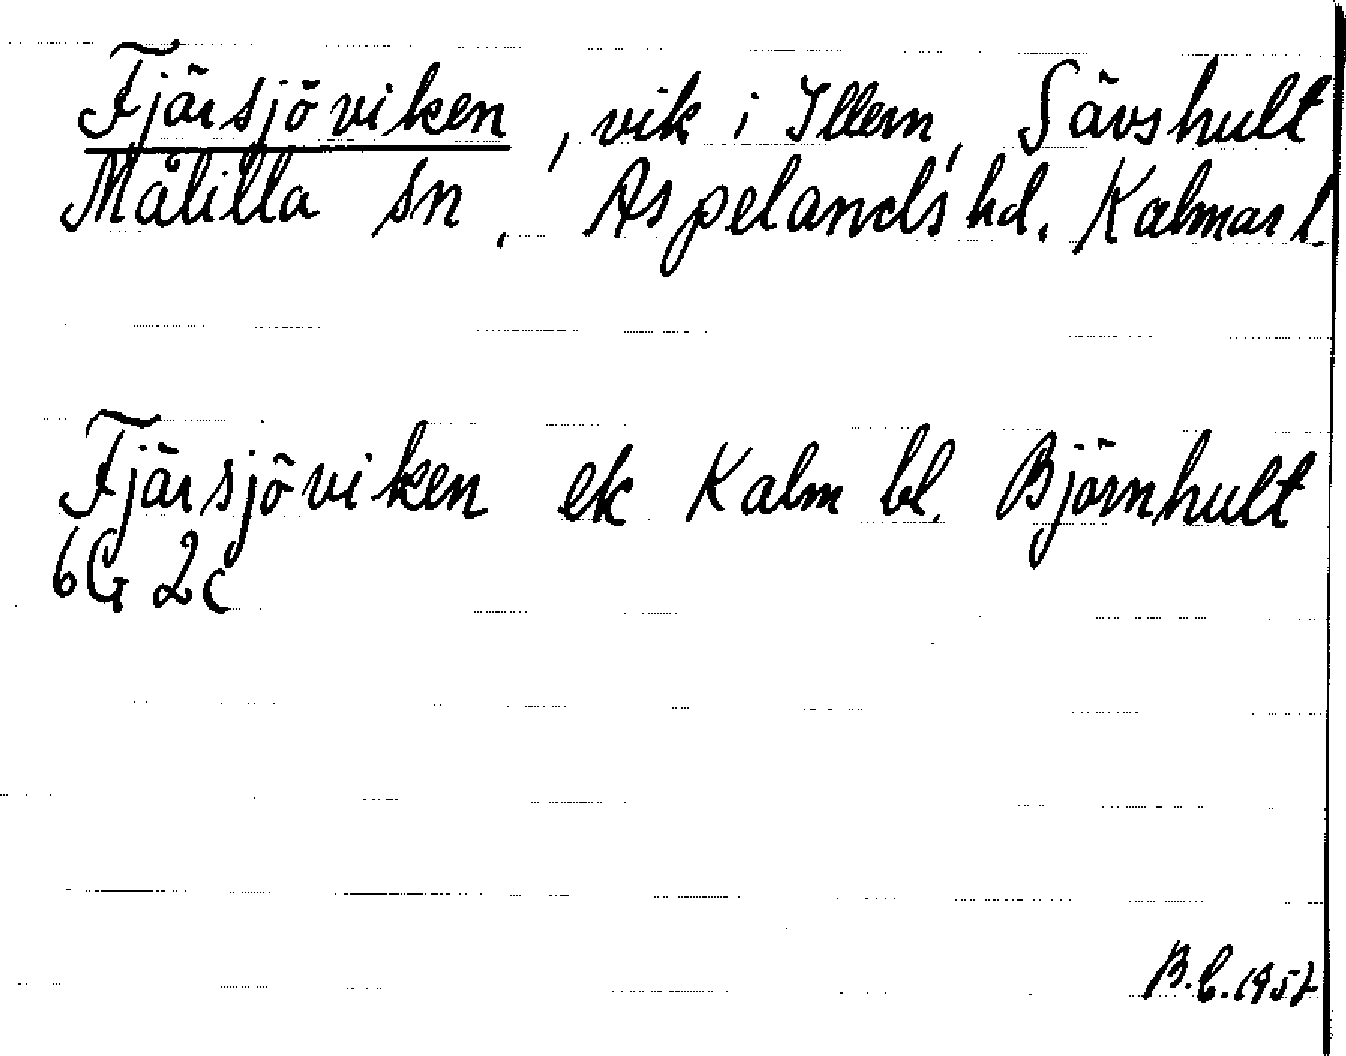 Fjärsjöviken, vik i Illern, Sävshult
Målilla sn, Aspelands hd. Kalmar l.
Fjärsjöviken ek Kalm bl. Björnhult
6G 2c